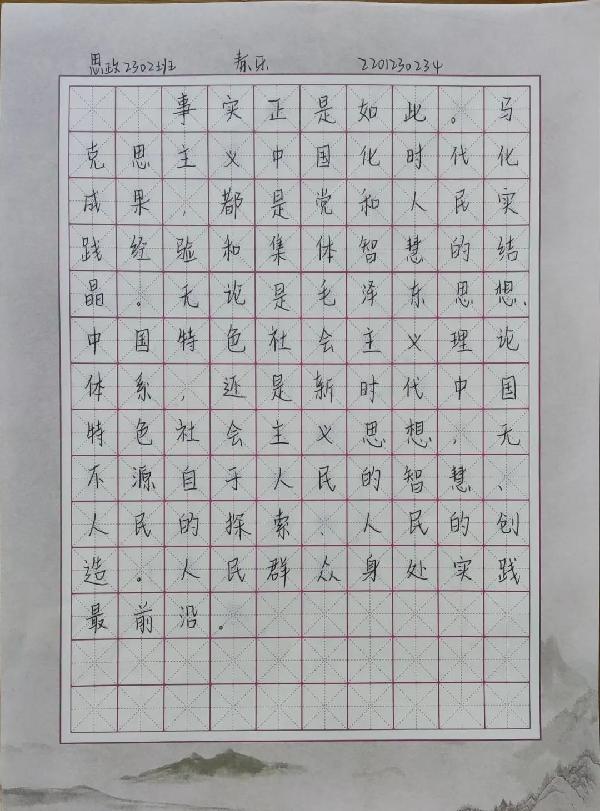 思政2302班 乐 2201230234
事实正是如此。马
克思主义中国化时代化
成果,都是党和人民实
践经验和集体智慧的结
晶。无论是毛泽东思想、
中国特色社会主义理论
体系,还是新时代中国
特色社会主义思想,无
不源自于人民的智慧、
人民的探索、人民的创
造。人民群众身处实践
最前沿。